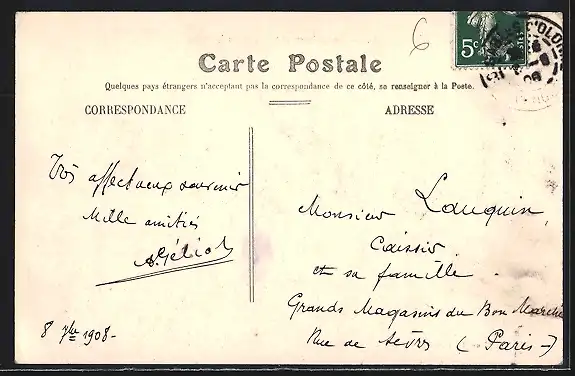 Carte Postale
Quelques pays étrangers n'acceptant pas la correspondance de ce côté, se renseigner à la Poste.
CORRESPONDANCE
ADRESSE
5c
6
Très affectueux souvenir
Mille amitiés
8 7bre 1908-
Monsieur Lauquin,
Caissier
et sa famille
Grands Magasins du Bon Marché
Rue de Sèvres (Paris-)